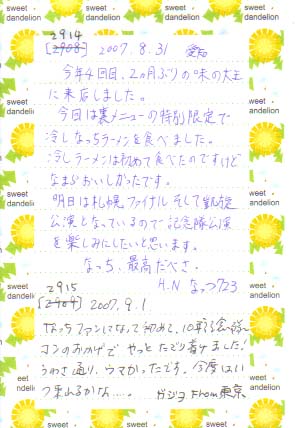 sweet dandelion
2914
[2908] 2007.8.31 愛知
今年4回目、2ヵ月ぶりの味の大王
に来店しました。
今回は裏メニューの特別限定で
冷しなっちラーメンを食べました。
冷しラーメンは初めて食べたのですけど
なまらおいしかったです。
明日は札幌ファイナル そして凱旋
公演となっているので記念隊公演
を楽しみにしたいと思います。
なっち、最高だべさ。
H.N なっつ723
2915
[2909] 2007.9.1
なっちファンになって初めて、10年
コンのおかげで やっと たどり着けました!
うわさ通り、ウマかったです。今度はいつ
来れるかな…。 From東京